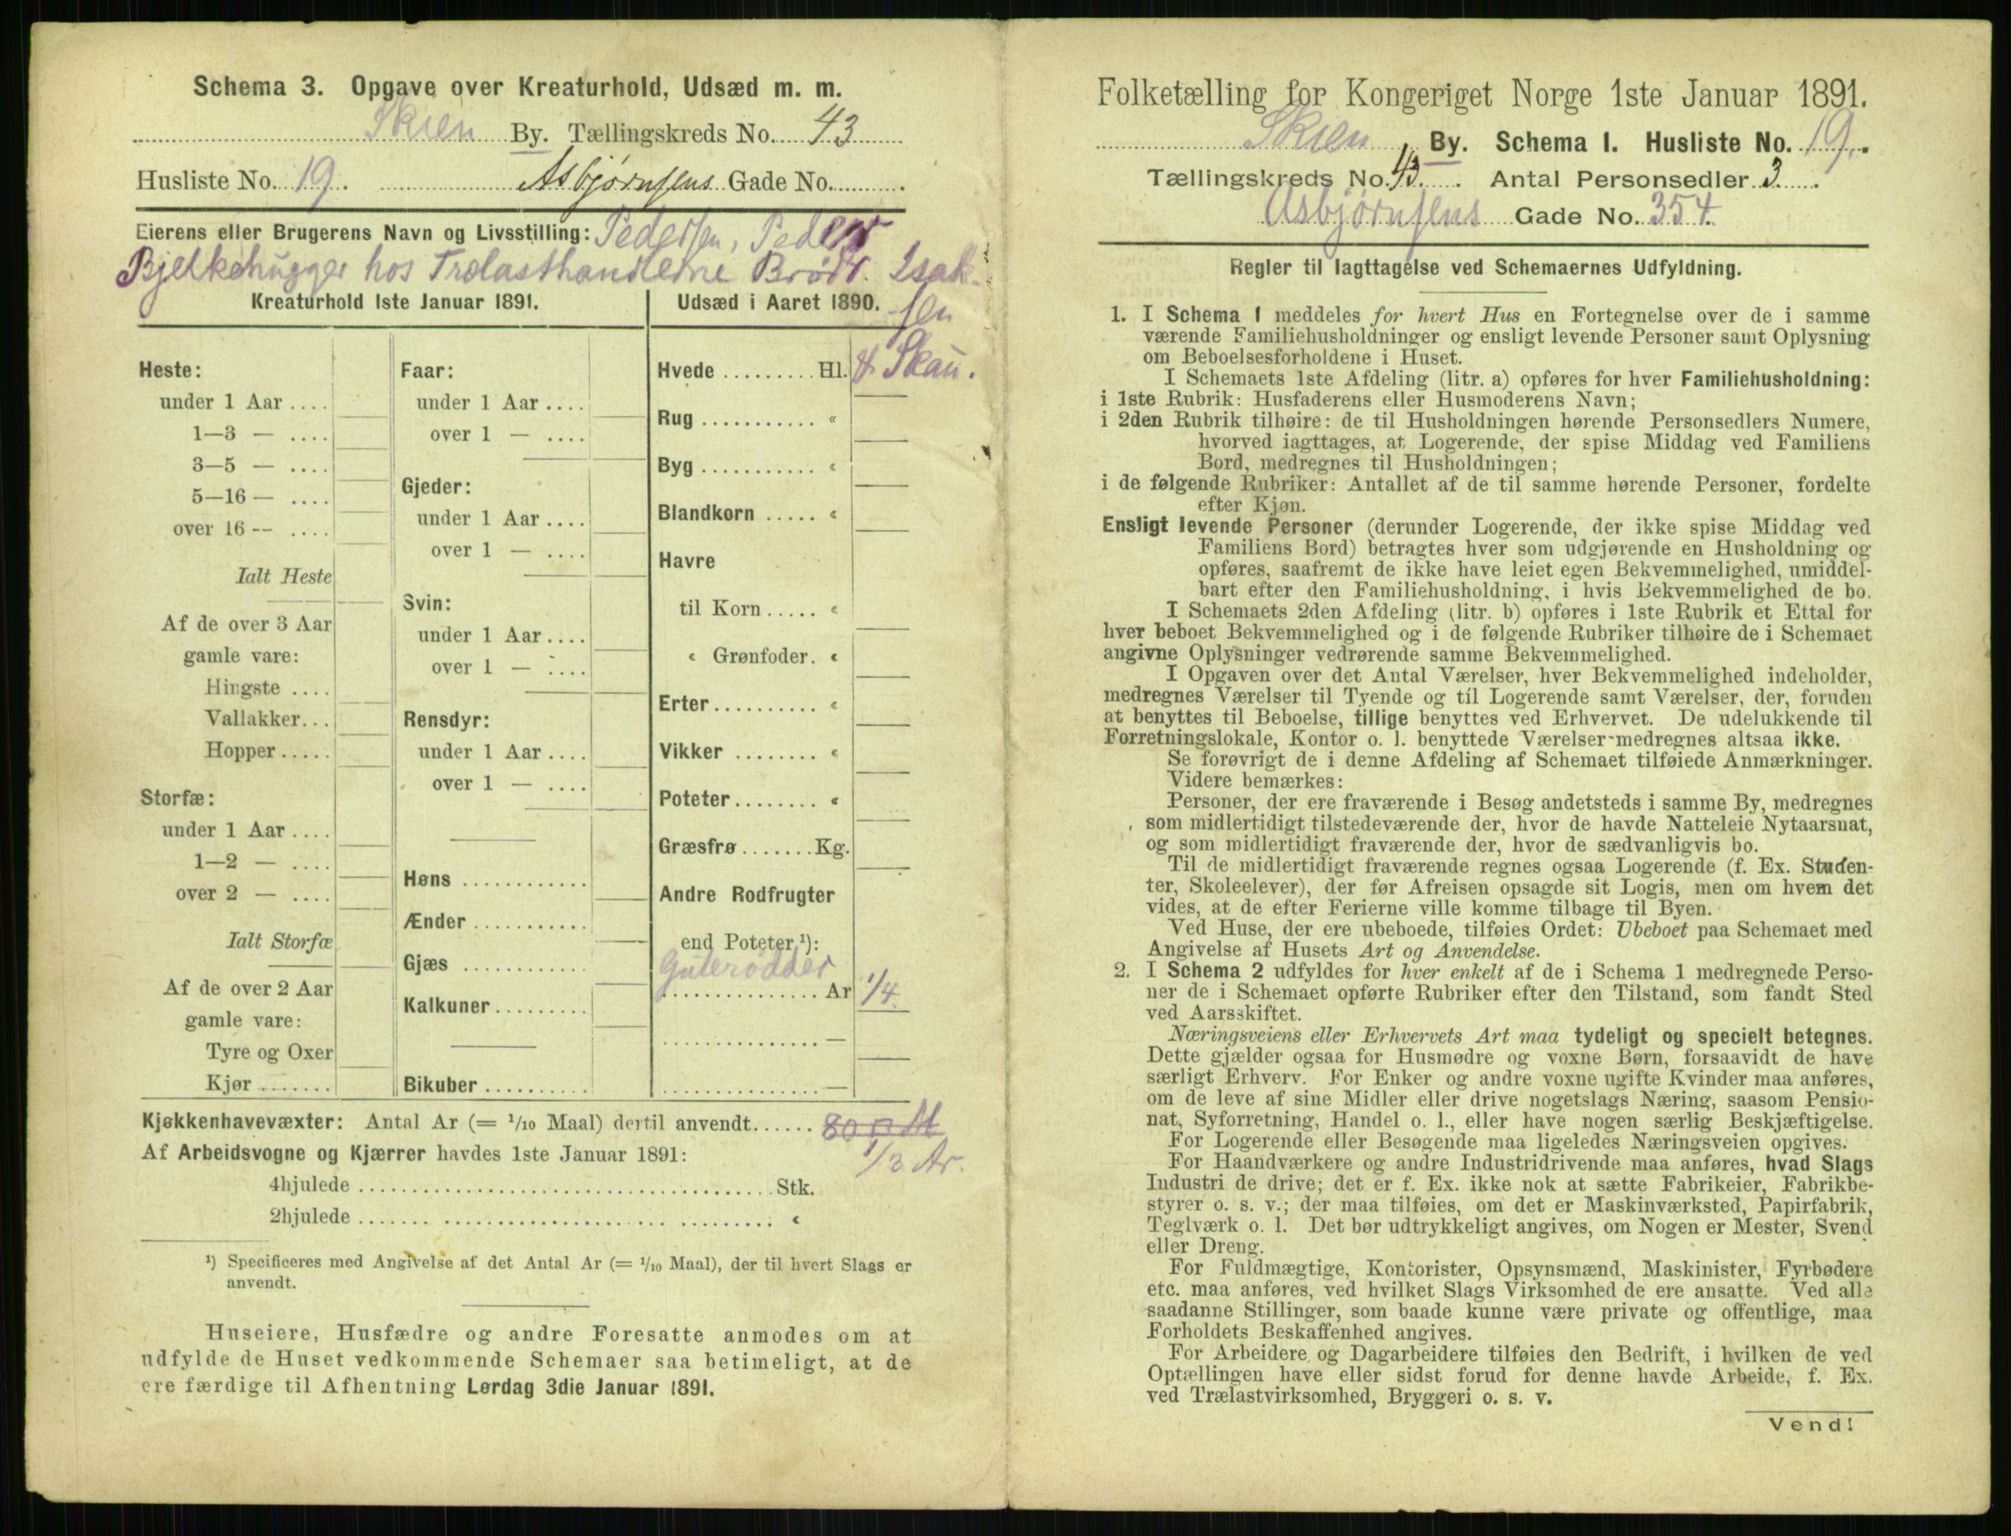 Schema 3. Opgave over Kreaturhold, Udsæd m. m.
Skien By. Tællingskreds No. 43
Husliste No. 19. Asbjørnsens Gade No.
Eierens eller Brugerens Navn og Livsstilling: Pedersen, Peder
Bjelkehugger hos Trælasthandlerne Brødr. Isak-
sen
& Skau.
Kreaturhold 1ste Januar 1891.
Heste:
under 1 Aar
1—3 —
3—5 —
5—16 —
over 16 --
Ialt Heste
Af de over 3 Aar
gamle vare:
Hingste
Vallakker
Hopper
Storfæ:
under 1 Aar
1—2 —
over 2 —
Ialt Storfæ
Af de over 2 Aar
gamle vare:
Tyre og Oxer
Kjør
Faar:
under 1 Aar
over 1 —
Gjeder:
under 1 Aar
over 1 —
Svin:
under 1 Aar
over 1 —
Rensdyr:
under 1 Aar
over 1 —
Høns
Ænder
Gjæs
Kalkuner
Bikuber
Udsæd i Aaret 1890.
Hvede Hl.
Rug "
Byg "
Blandkorn "
Havre
til Korn "
" Grønfoder. "
Erter "
Vikker "
Poteter "
Græsfrø Kg.
Andre Rodfrugter
end Poteter ¹):
Gulerødder
Ar 1/4.
—
—
Kjøkkenhavevæxter: Antal Ar (= 1/10 Maal) dertil anvendt 80 □ M
1/2 Ar.
Af Arbeidsvogne og Kjærrer havdes 1ste Januar 1891:
4hjulede Stk.
2hjulede "
¹) Specificeres med Angivelse af det Antal Ar (= 1/10 Maal), der til hvert Slags er
anvendt.
Huseiere, Husfædre og andre Foresatte anmodes om at
udfylde de Huset vedkommende Schemaer saa betimeligt, at de
ere færdige til Afhentning Lørdag 3die Januar 1891.
Folketælling for Kongeriget Norge 1ste Januar 1891.
Skien By. Schema I. Husliste No. 19.
Tællingskreds No. 43. Antal Personsedler 3.
Asbjørnsens Gade No. 354.
Regler til Iagttagelse ved Schemaernes Udfyldning.
1. I Schema 1 meddeles for hvert Hus en Fortegnelse over de i samme
værende Familiehusholdninger og ensligt levende Personer samt Oplysning
om Beboelsesforholdene i Huset.
I Schemaets 1ste Afdeling (litr. a) opføres for hver Familiehusholdning:
i 1ste Rubrik: Husfaderens eller Husmoderens Navn;
i 2den Rubrik tilhøire: de til Husholdningen hørende Personsedlers Numere,
hvorved iagttages, at Logerende, der spise Middag ved Familiens
Bord, medregnes til Husholdningen;
i de følgende Rubriker: Antallet af de til samme hørende Personer, fordelte
efter Kjøn.
Ensligt levende Personer (derunder Logerende, der ikke spise Middag ved
Familiens Bord) betragtes hver som udgjørende en Husholdning og
opføres, saafremt de ikke have leiet egen Bekvemmelighed, umiddel-
bart efter den Familiehusholdning, i hvis Bekvemmelighed de bo.
I Schemaets 2den Afdeling (litr. b) opføres i 1ste Rubrik et Ettal for
hver beboet Bekvemmelighed og i de følgende Rubriker tilhøire de i Schemaet
angivne Oplysninger vedrørende samme Bekvemmelighed.
I Opgaven over det Antal Værelser, hver Bekvemmelighed indeholder,
medregnes Værelser til Tyende og til Logerende samt Værelser, der, foruden
at benyttes til Beboelse, tillige benyttes ved Erhvervet. De udelukkende til
Forretningslokale, Kontor o. l. benyttede Værelser medregnes altsaa ikke.
Se forøvrigt de i denne Afdeling af Schemaet tilføiede Anmærkninger.
Videre bemærkes:
Personer, der ere fraværende i Besøg andetsteds i samme By, medregnes
som midlertidigt tilstedeværende der, hvor de havde Natteleie Nytaarsnat,
og som midlertidigt fraværende der, hvor de sædvanligvis bo.
Til de midlertidigt fraværende regnes ogsaa Logerende (f. Ex. Studen-
ter, Skoleelever), der før Afreisen opsagde sit Logis, men om hvem det
vides, at de efter Ferierne ville komme tilbage til Byen.
Ved Huse, der ere ubeboede, tilføies Ordet: Ubeboet paa Schemaet med
Angivelse af Husets Art og Anvendelse.
2. I Schema 2 udfyldes for hver enkelt af de i Schema 1 medregnede Perso-
ner de i Schemaet opførte Rubriker efter den Tilstand, som fandt Sted
ved Aarsskiftet.
Næringsveiens eller Erhvervets Art maa tydeligt og specielt betegnes.
Dette gjælder ogsaa for Husmødre og voxne Børn, forsaavidt de have
særligt Erhverv. For Enker og andre voxne ugifte Kvinder maa anføres,
om de leve af sine Midler eller drive nogetslags Næring, saasom Pensio-
nat, Syforretning, Handel o. l., eller have nogen særlig Beskjæftigelse.
For Logerende eller Besøgende maa ligeledes Næringsveien opgives.
For Haandværkere og andre Industridrivende maa anføres, hvad Slags
Industri de drive; det er f. Ex. ikke nok at sætte Fabrikeier, Fabrikbe-
styrer o. s. v.; der maa tilføies, om det er Maskinværksted, Papirfabrik,
Teglværk o. l. Det bør udtrykkeligt angives, om Nogen er Mester, Svend
eller Dreng.
For Fuldmægtige, Kontorister, Opsynsmænd, Maskinister, Fyrbødere
etc. maa anføres, ved hvilket Slags Virksomhed de ere ansatte. Ved alle
saadanne Stillinger, som baade kunne være private og offentlige, maa
Forholdets Beskaffenhed angives.
For Arbeidere og Dagarbeidere tilføies den Bedrift, i hvilken de ved
Optællingen have eller sidst forud for denne havde Arbeide, f. Ex.
ved Trælastvirksomhed, Bryggeri o. s. v.
Vend!